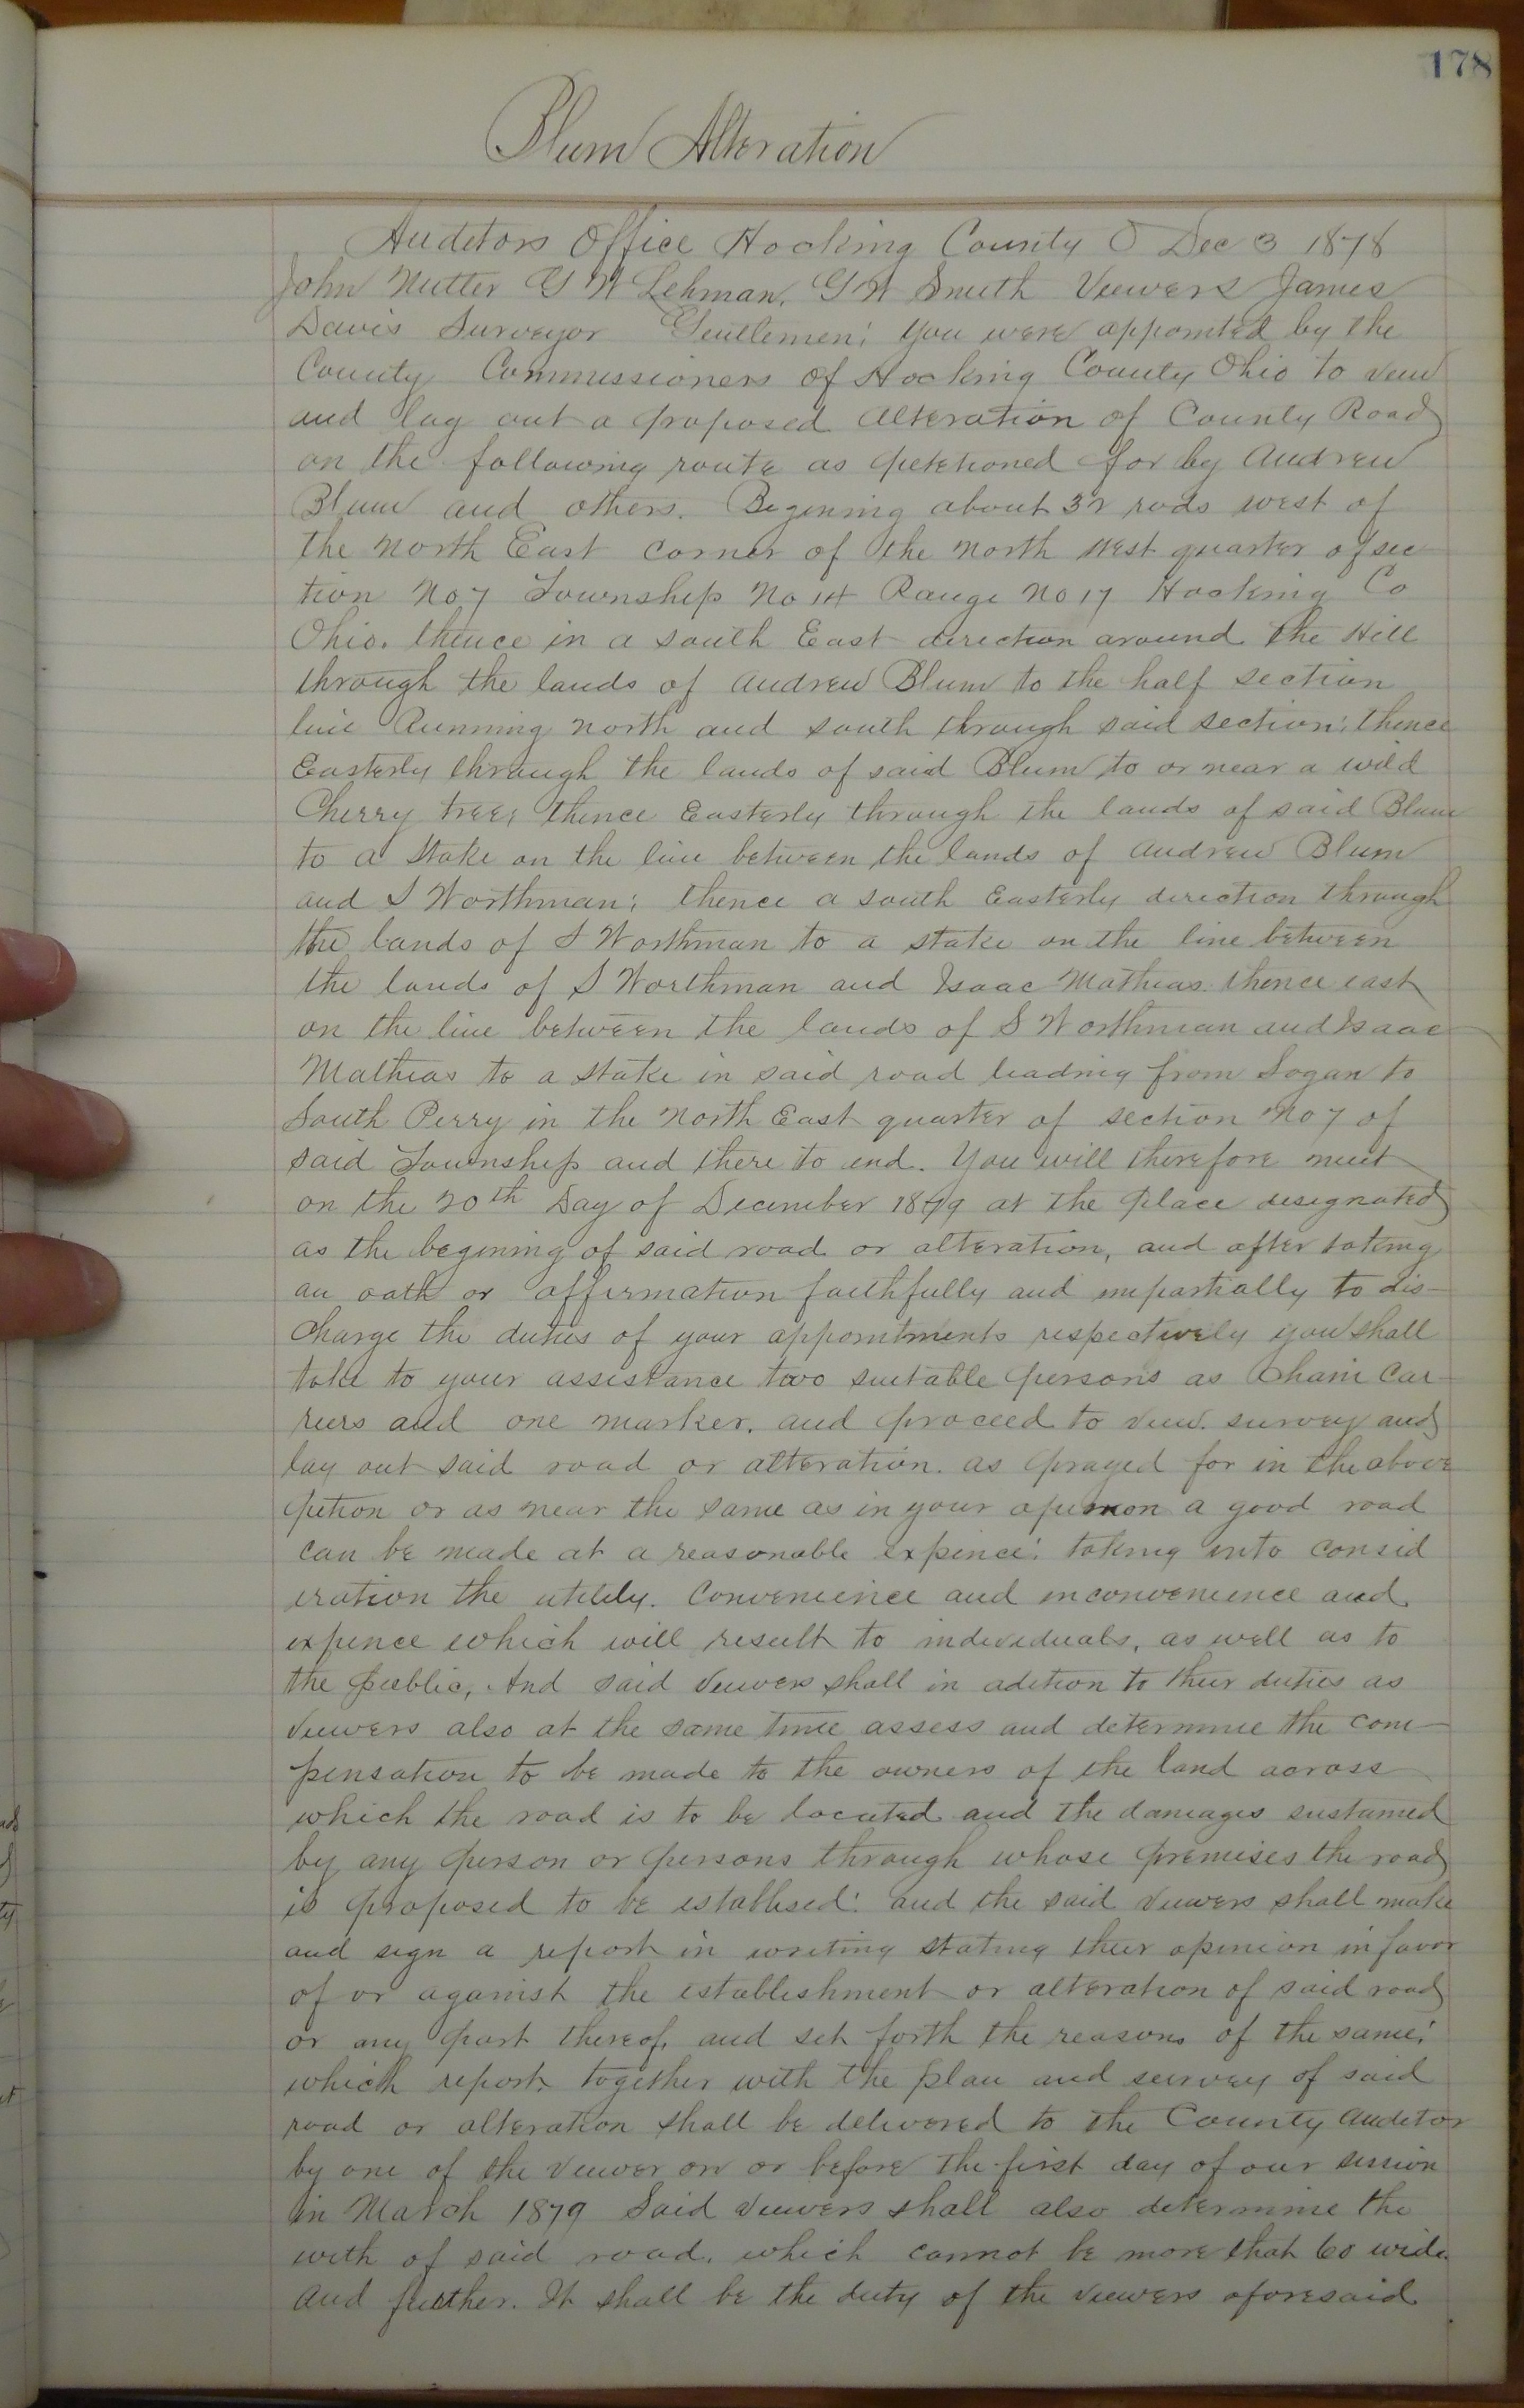 178
Blum Alteration
Auditors Office Hocking County O Dec 3 1878
John Nutter G W Lehman, G W Smith Viewers James
Davis Surveyor Gentlemen; You were appointed by the
County Commissioners of Hocking County Ohio to view
and lay out a proposed Alteration of County Road
on the following route as petetioned for by Andrew
Blum and others. Begining about 32 rods west of
the North East corner of the North West quarter of sec
tion No 7 Township No 14 Range No 17 Hocking Co
Ohio. thence in a south East direction around the Hill
through the lands of Andrew Blum to the half section
line Running north and south through said section; thence
Easterly through the lands of said Blum to or near a wild
Cherry tree; thence Easterly through the lands of said Blum
to a Stake on the line between the lands of Andrew Blum
and S Worthman; thence a south Easterly direction through
the lands of S Worthman to a stake on the line between
the lands of S Worthman and Isaac Mathias. thence east
on the line between the lands of S Worthman and Isaac
Mathias to a Stake in said road leading from Logan to
South Perry in the North East quarter of section No 7 of
said Township and there to end. You will therefore meet
on the 20th Day of December 1879 at the place designated
as the begining of said road or alteration, and after taking
an oath or affirmation faithfully and impartially to dis-
charge the duties of your appointments respectively you shall
take to your assistance two suitable persons as Chain Car-
riers and one marker. and proceed to view. survey and
lay out said road or alteration. as prayed for in the above
petion or as near the same as in your opinion a good road
can be made at a reasonable expence; taking into consid
eration the utility. Convenience and inconvenience and
expence which will result to individuals, as well as to
the public, And said Viewers shall in adition to their duties as
Viewers also at the same time assess and determine the com-
pensation to be made to the owners of the land across
which the road is to be located and the damages sustained
by any person or persons through whose premises the road
is proposed to be establised; and the said Viewers shall make
and sign a report in writing stating their opinion in favor
of or against the establishment or alteration of said road
or any part thereof, and set forth the reasons of the same;
which report, together with the plan and survey of said
road or alteration shall be delivered to the County Auditor
by one of the Viewer on or before the first day of our session
in March 1879 Said Viewers shall also determine the
with of said road, which cannot be more that 60 wide.
and further. It shall be the duty of the Viewers aforesaid